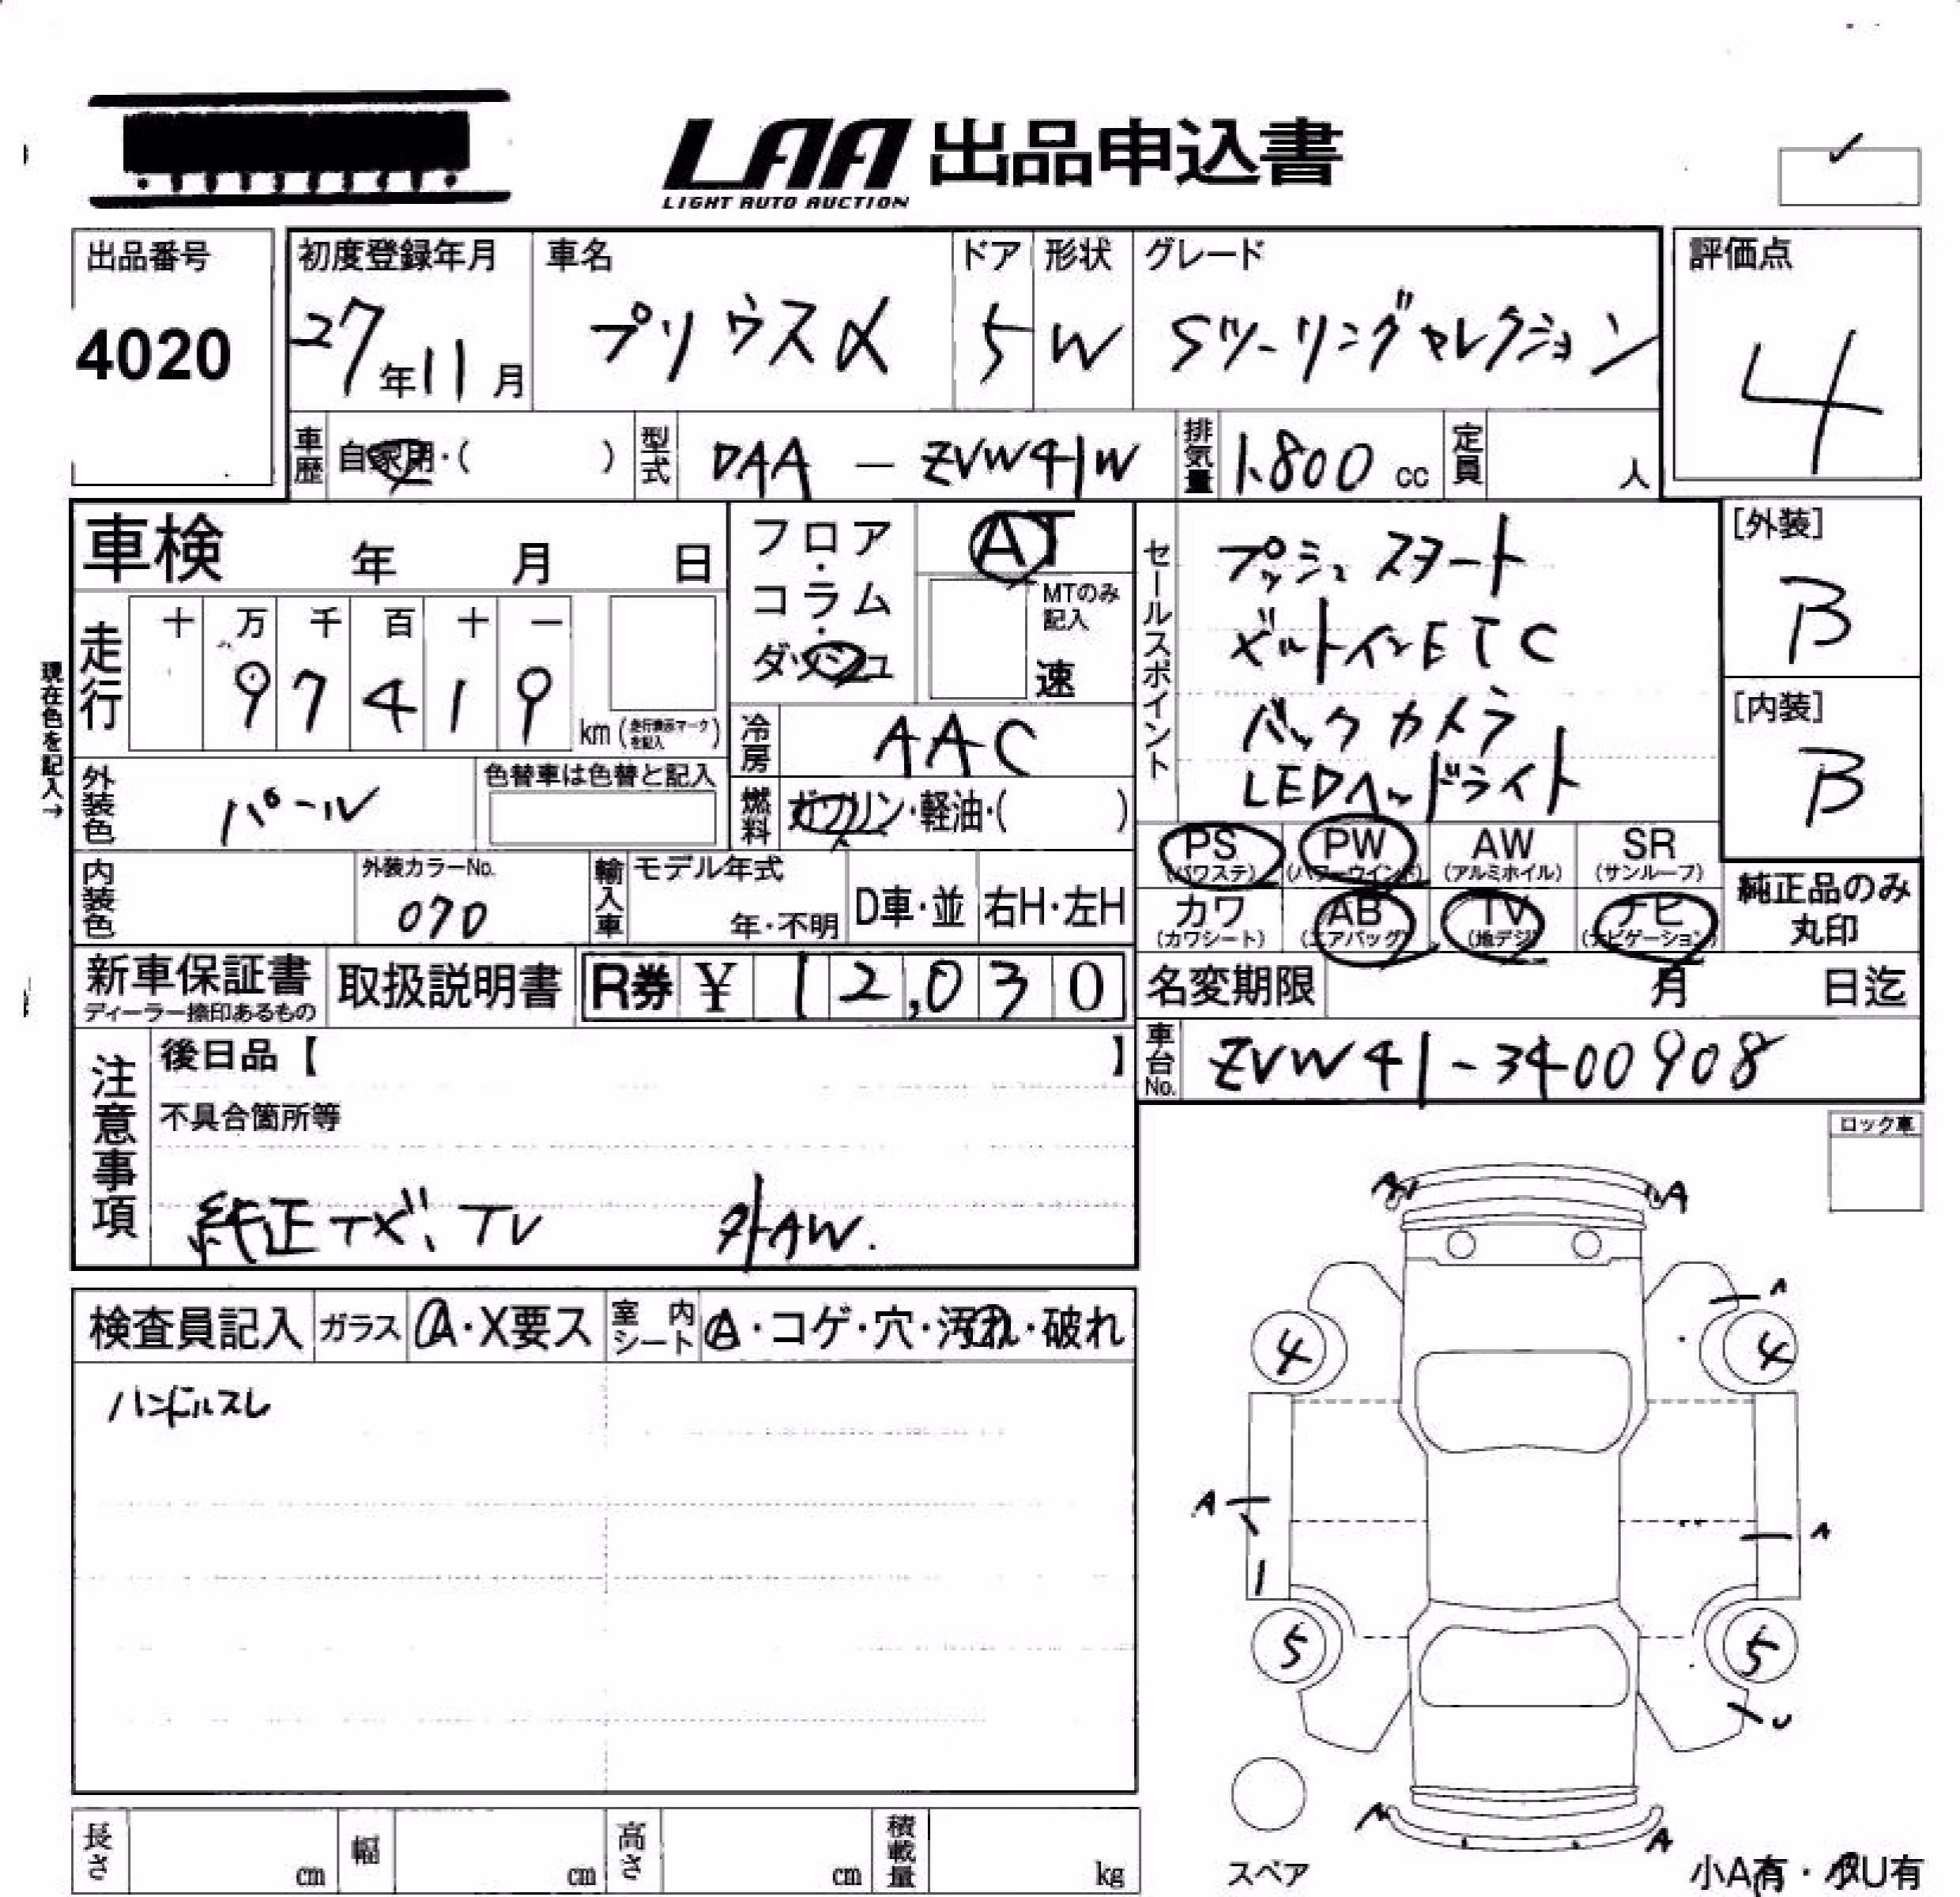 LAA 出品申込書
LIGHT AUTO AUCTION
出品番号
4020
初度登録年月
27年11月
車名
プリウスα
ドア
5
形状
W
グレード
Sツーリングセレクション
評価点
4
車歴 自家用・( )
型式 DAA - ZVW41W
排気量 1.800 cc
定員 人
車検 年 月 日
フロア・コラム・ダッシュ
AT
MTのみ記入
速
セールスポイント
プッシュスタート
ビルトインETC
バックカメラ
LEDヘッドライト
[外装]
B
[内装]
B
現在色を記入→
走行
十 万 千 百 十 一
9 7 4 1 9
km(走行表示マークを記入)
冷房 AAC
外装色 パール
色替車は色替と記入
燃料 ガソリン・軽油・( )
PS (パワステ)
PW (パワーウインド)
AW (アルミホイル)
SR (サンルーフ)
カワ (カワシート)
AB (エアバッグ)
TV (地デジ)
ナビ (ナビゲーション)
純正品のみ丸印
内装色
外装カラーNo.
070
輸入車 モデル年式
年・不明
D車・並
右H・左H
新車保証書
ディーラー捺印あるもの
取扱説明書
R券 ¥ 12,030
名変期限 月 日迄
車台No. ZVW41-3400908
注意事項
後日品【 】
不具合箇所等
純正ナビ、TV 外AW.
ロック車
検査員記入
ガラス A・X要ス
室内シート A・コゲ・穴・汚れ・破れ
ハンドルスレ
A A
A
4 4
A A
1
5 5
U
A A
スペア
長さ cm
幅 cm
高さ cm
積載量 kg
小A有・小U有